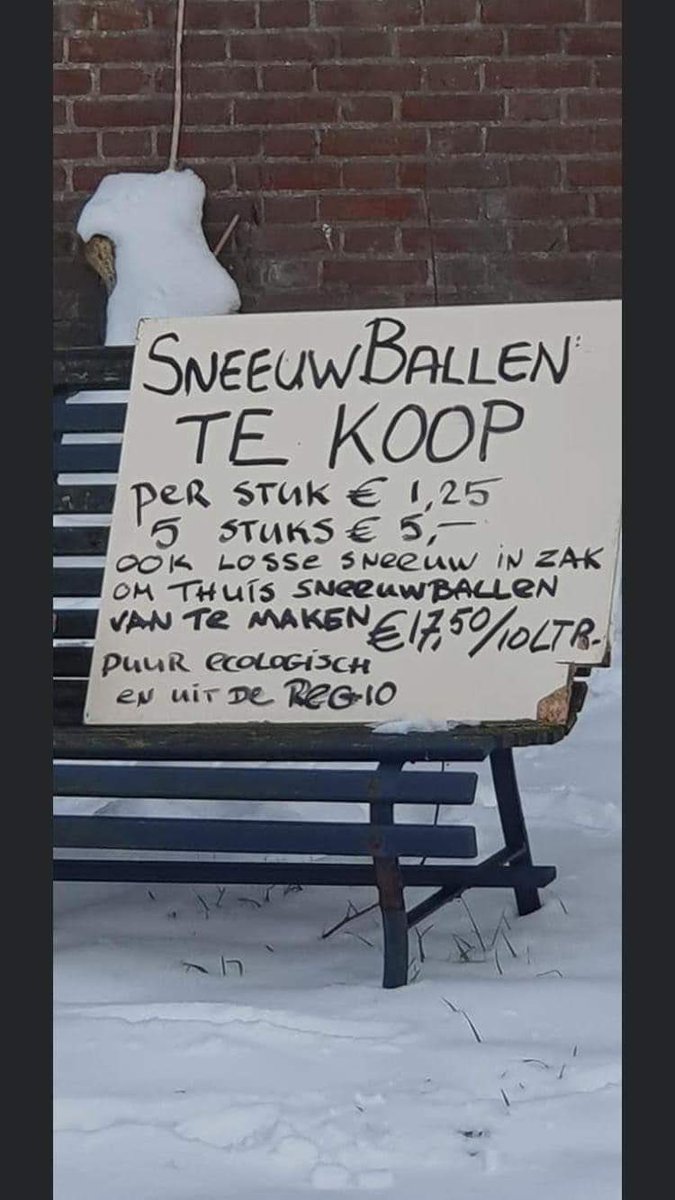 SNEEUWBALLEN:
TE KOOP
PER STUK € 1,25
5 STUKS € 5,—
OOK LOSSE SNEEUW IN ZAK
OM THUIS SNEEUWBALLEN
VAN TE MAKEN €17,50/10LTR.
PUUR ECOLOGISCH
EN UIT DE REGIO